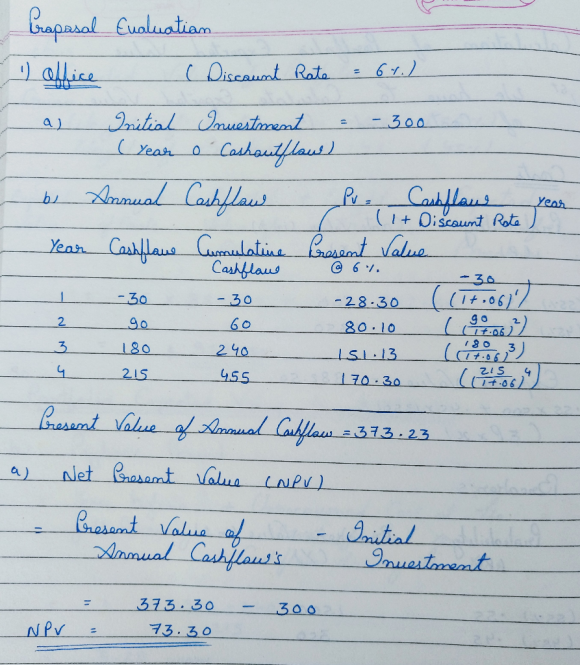 Proposal Evaluation
1) Office ( Discount Rate = 6%.)
a) Initial Investment = -300
( Year 0 Cashoutflow )
b) Annual Cashflow Pv = Cashflow / ( 1 + Discount Rate ) Year
Year Cashflow Cumulative Cashflow Present Value @ 6%.
1 -30 -30 -28.30 ( -30 / (1+.06)¹ )
2 90 60 80.10 ( 90 / (1+.06)² )
3 180 240 151.13 ( 180 / (1+.06)³ )
4 215 455 170.30 ( 215 / (1+.06)⁴ )
Present Value of Annual Cashflow = 373.23
a) Net Present Value ( NPV )
= Present Value of Annual Cashflow's - Initial Investment
= 373.30 - 300
NPV = 73.30